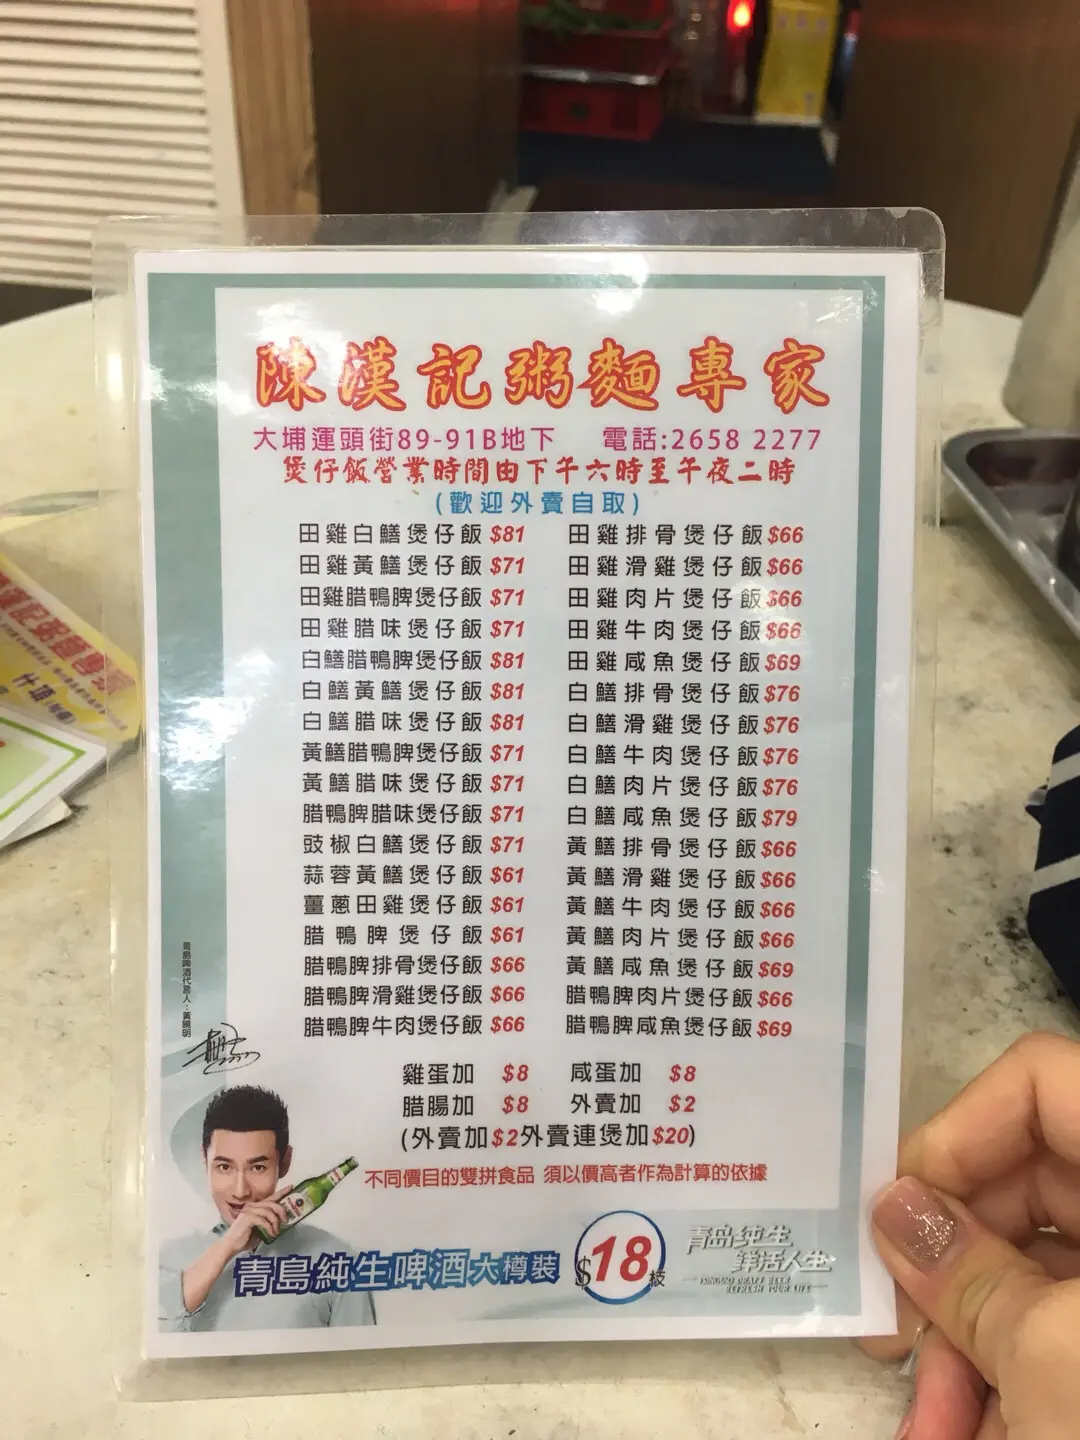 陳漢記粥麵專家
大埔運頭街89-91B地下 電話:2658 2277
煲仔飯營業時間由下午六時至午夜二時
(歡迎外賣自取)
田雞白鱔煲仔飯 $81
田雞黃鱔煲仔飯 $71
田雞腊鴨脾煲仔飯 $71
田雞腊味煲仔飯 $71
白鱔腊鴨脾煲仔飯 $81
白鱔黃鱔煲仔飯 $81
白鱔腊味煲仔飯 $81
黃鱔腊鴨脾煲仔飯 $71
黃鱔腊味煲仔飯 $71
腊鴨脾腊味煲仔飯 $71
豉椒白鱔煲仔飯 $71
蒜蓉黃鱔煲仔飯 $61
薑蔥田雞煲仔飯 $61
腊鴨脾煲仔飯 $61
腊鴨脾排骨煲仔飯 $66
腊鴨脾滑雞煲仔飯 $66
腊鴨脾牛肉煲仔飯 $66
田雞排骨煲仔飯 $66
田雞滑雞煲仔飯 $66
田雞肉片煲仔飯 $66
田雞牛肉煲仔飯 $66
田雞咸魚煲仔飯 $69
白鱔排骨煲仔飯 $76
白鱔滑雞煲仔飯 $76
白鱔牛肉煲仔飯 $76
白鱔肉片煲仔飯 $76
白鱔咸魚煲仔飯 $79
黃鱔排骨煲仔飯 $66
黃鱔滑雞煲仔飯 $66
黃鱔牛肉煲仔飯 $66
黃鱔肉片煲仔飯 $66
黃鱔咸魚煲仔飯 $69
腊鴨脾肉片煲仔飯 $66
腊鴨脾咸魚煲仔飯 $69
雞蛋加 $8 咸蛋加 $8
腊腸加 $8 外賣加 $2
(外賣加$2外賣連煲加$20)
不同價目的雙拼食品 須以價高者作為計算的依據
青島啤酒代言人：黃曉明
青島純生啤酒大樽裝 $18枝
青島純生
鮮活人生
TSINGTAO DRAFT BEER
REFRESH YOUR LIFE